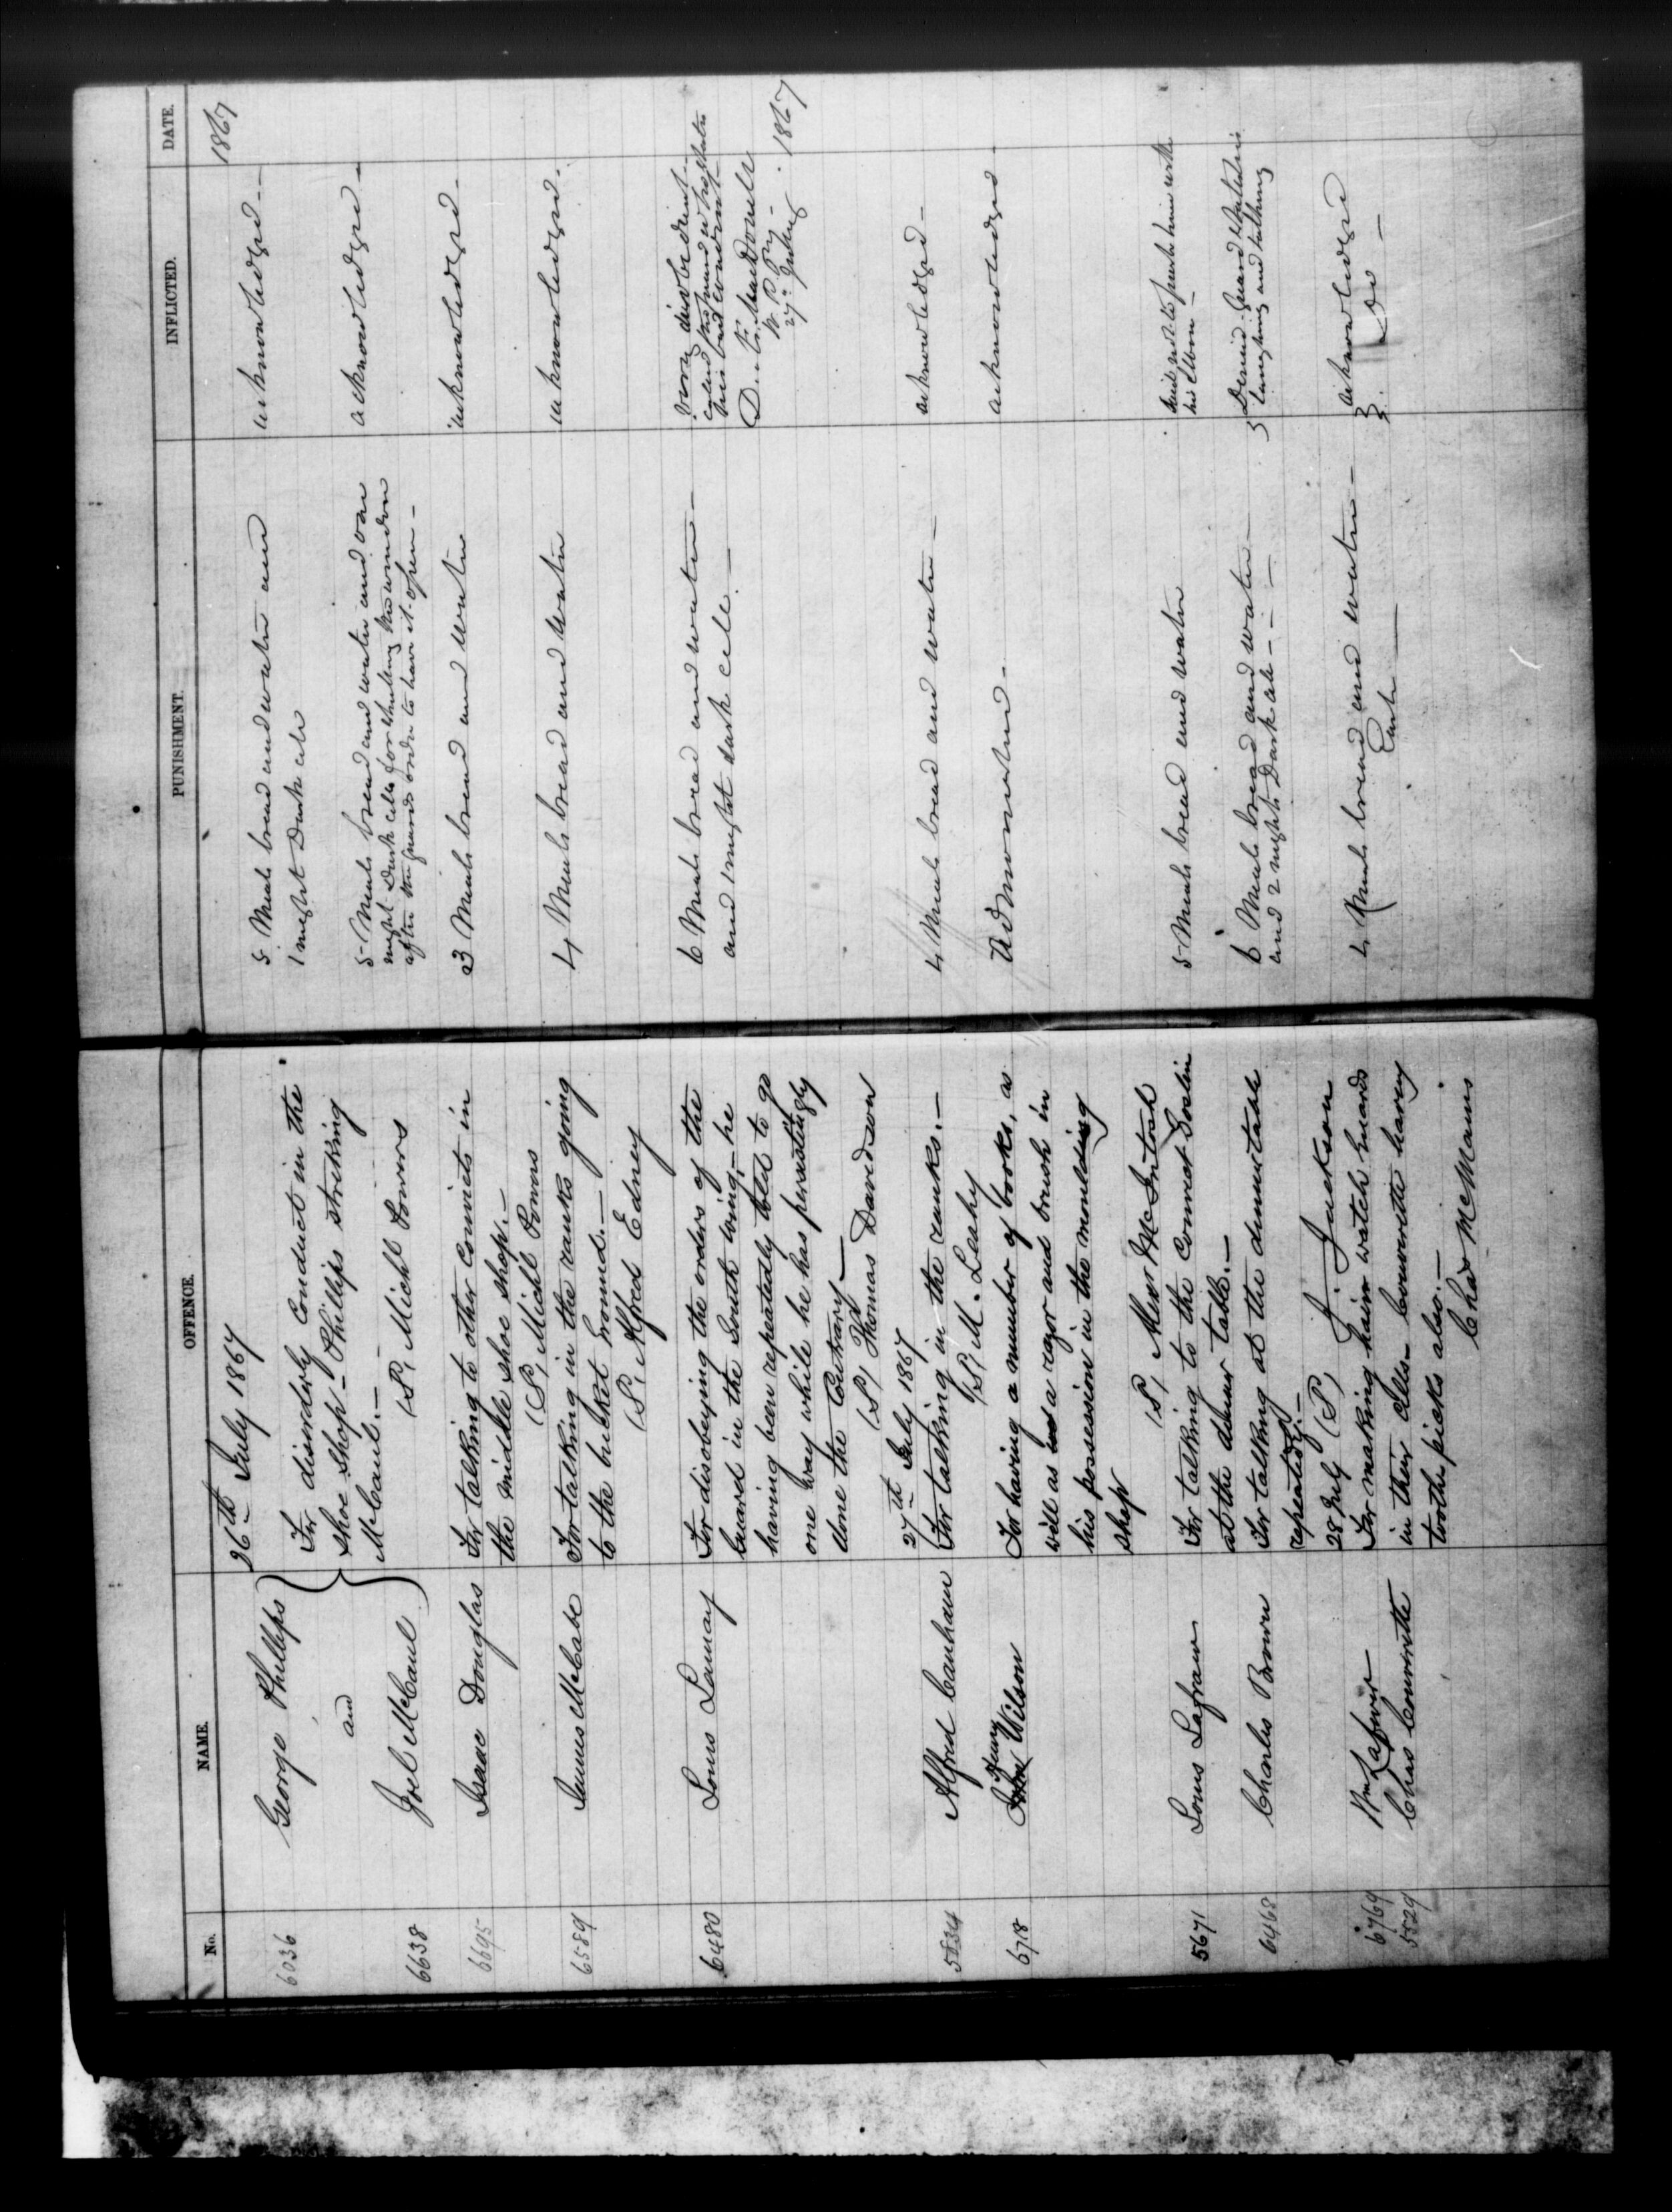 No. NAME. OFFENCE. PUNISHMENT. INFLICTED. DATE.
26th July 1867
1867
6036 George Phillips
and
6638 Joel McCaul
For disorderly Conduct in the
shoe shop - Phillips striking
McCaul. -
(S) Michl Powers
5 Meals bread and water and
1 night Dark cell
acknowledged -
5 Meals bread and water and one
night Dark cell for shutting the window
after the guards order to have it open -
acknowledged -
6695 Isaac Douglas
For talking to other Convicts in
the middle shoe shop. -
(S) Michl Powers
3 Meals bread and water
acknowledged -
6589 James McCabe
For talking in the ranks going
to the bucket Ground. -
(S) Alfred Edney
4 Meals bread and water
acknowledged -
6480 Louis Lamay
For disobeying the orders of the
Guard in the South wing, - he
having been repeatedly told to go
one way while he has persistingly
done the Contrary. -
(S) Thomas Davidson
6 Meals bread and water -
and 1 night dark cell -
very disobedient
his bad conduct
W. P. Py -
27th July 1867
27th July 1867
5534 Alfred Canham
For talking in the ranks. -
(S) M. Leahy
4 Meals bread and water -
acknowledged -
6718 Henry Wilson
For having a number of books, as
well as a razor and brush in
his possession in the moulding
shop
(S) Alexr McIntosh
Admonished -
acknowledged -
5671 Louis Lafram
For talking to the Convict Goslin
at the dinner table. -
5 Meals bread and water
said not to push him with
his elbow -
6468 Charles Brown
For talking at the dinner table
repeatedly. -
(S) J. Jackson
6 Meals bread and water -
and 2 nights Dark cell - - -
Denied. Guard states his
laughing and talking
28 July
6769 Wm Lafevir
5529 Chas Courvrette
For making hair watch Guards
in their cells - Courvrette having
tooth picks also. -
Chas McManus
4 Meals bread and water -
Each
acknowledged
Do -